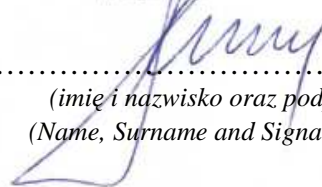 ……………………………………
(imię i nazwisko oraz pod
(Name, Surname and Signa